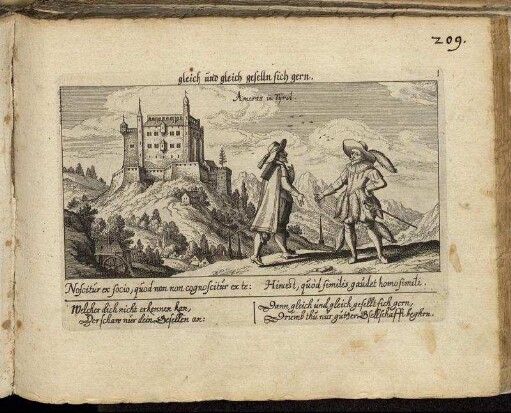 209.
gleich ünd gleich geselln sich gern.
1
Ameras in Tÿrol.
Noscitur ex socio, quod non non cognoscitur ex te:
Hinc est, quod similis gaudet homo simili.
Welcher dich nicht erkennen kan,
Der schaw nür dein Gesellen an:
Denn gleich ünd gleich gesellt sich gern,
Drümb thü nür gütter Gsellschafft begehrn.